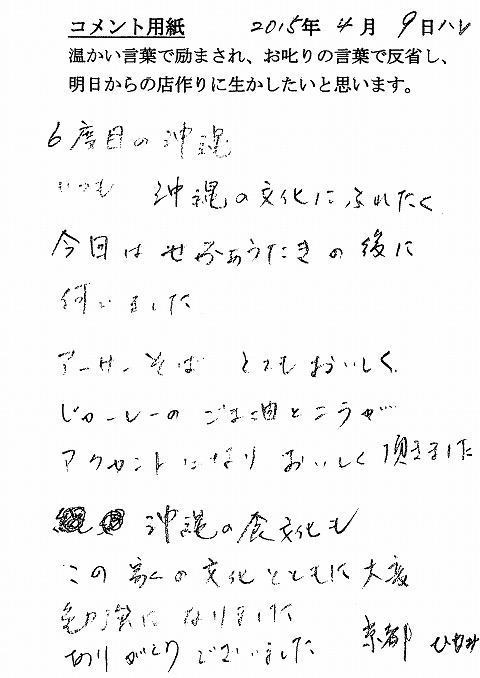 コメント用紙 2015年4月9日ハレ
温かい言葉で励まされ、お叱りの言葉で反省し、
明日からの店作りに生かしたいと思います。
6度目の沖縄
いつも 沖縄の文化にふれたく
今回は せーふぁうたきの後に
伺いました
アーサーそば とてもおいしく
じゅーしーのごま油とニラが
アクセントになり おいしく頂きました
沖縄の食文化も
この 文化とともに大変
勉強になりました
ありがとうございました 京都